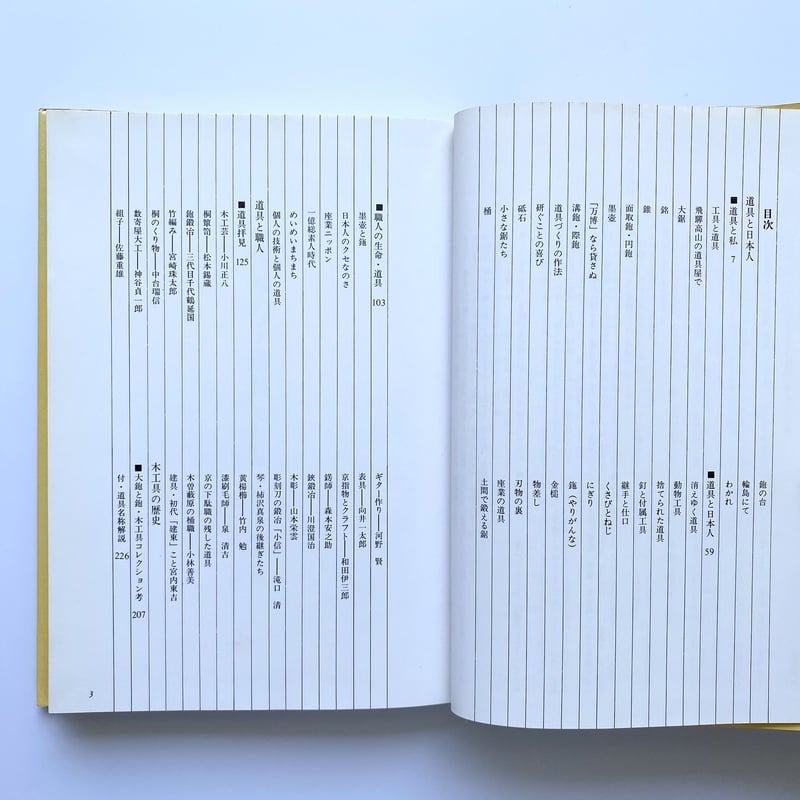 目次
道具と日本人
■道具と私 7
工具と道具
飛驒高山の道具屋で
大鋸
銘
錐
面取鉋・円鉋
墨壺
「万博」なら貸さぬ
溝鉋・際鉋
道具づくりの作法
研ぐことの喜び
砥石
小さな鋸たち
桶
鉋の台
輪島にて
わかれ
■道具と日本人 59
消えゆく道具
動物工具
捨てられた道具
釘と付属工具
継手と仕口
くさびとねじ
にぎり
鉇(やりがんな)
金槌
物差し
刃物の裏
座業の道具
土間で鍛える鋸
■職人の生命・道具 103
墨壺と鉋
日本人のクセなのさ
座業ニッポン
一億総素人時代
めいめいまちまち
個人の技術と個人の道具
道具と職人
■道具拝見 125
木工芸——小川正八
桐簞笥——松本錫蔵
鉋鍛冶——三代目千代鶴延国
竹編み——宮崎珠太郎
桐のくり物——中台瑞信
数寄屋大工——神谷貞一郎
組子——佐藤重雄
ギター作り——河野 賢
表具——向井一太郎
京指物とクラフト——和田伊三郎
錺師——森本安之助
鋏鍛冶——川澄国治
木彫——山本栄雲
彫刻刀の鍛冶「小信」——滝口 清
琴・柿沢真泉の後継ぎたち
黄楊櫛——竹内 勉
漆刷毛師——泉 清吉
京の下駄職の残した道具
木曽藪原の桶職——小林善美
建具・初代「建東」こと宮内東吉
木工具の歴史
■大鉋と鉋・木工具コレクション考 207
付・道具名称解説 226
3